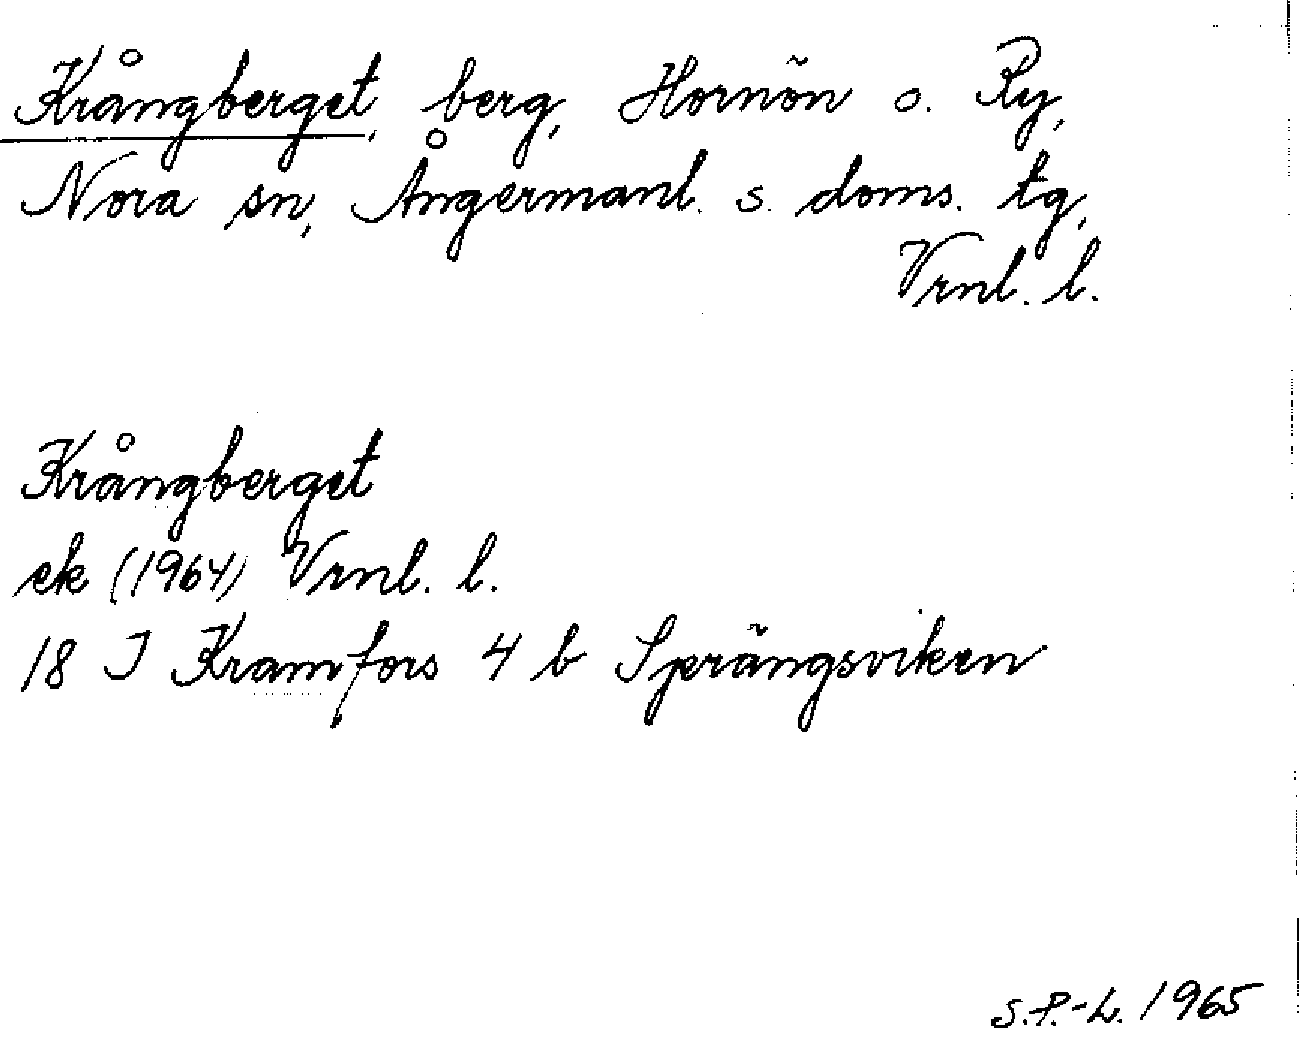 Krångberget, berg, Hornön o. Ry,
Nora sn, Ångermanl. s. doms. tg,
Vrnl. l.
Krångberget
ek (1964) Vrnl. l.
18 I Kramfors 4 b Sprängsviken
S.P.-L. 1965